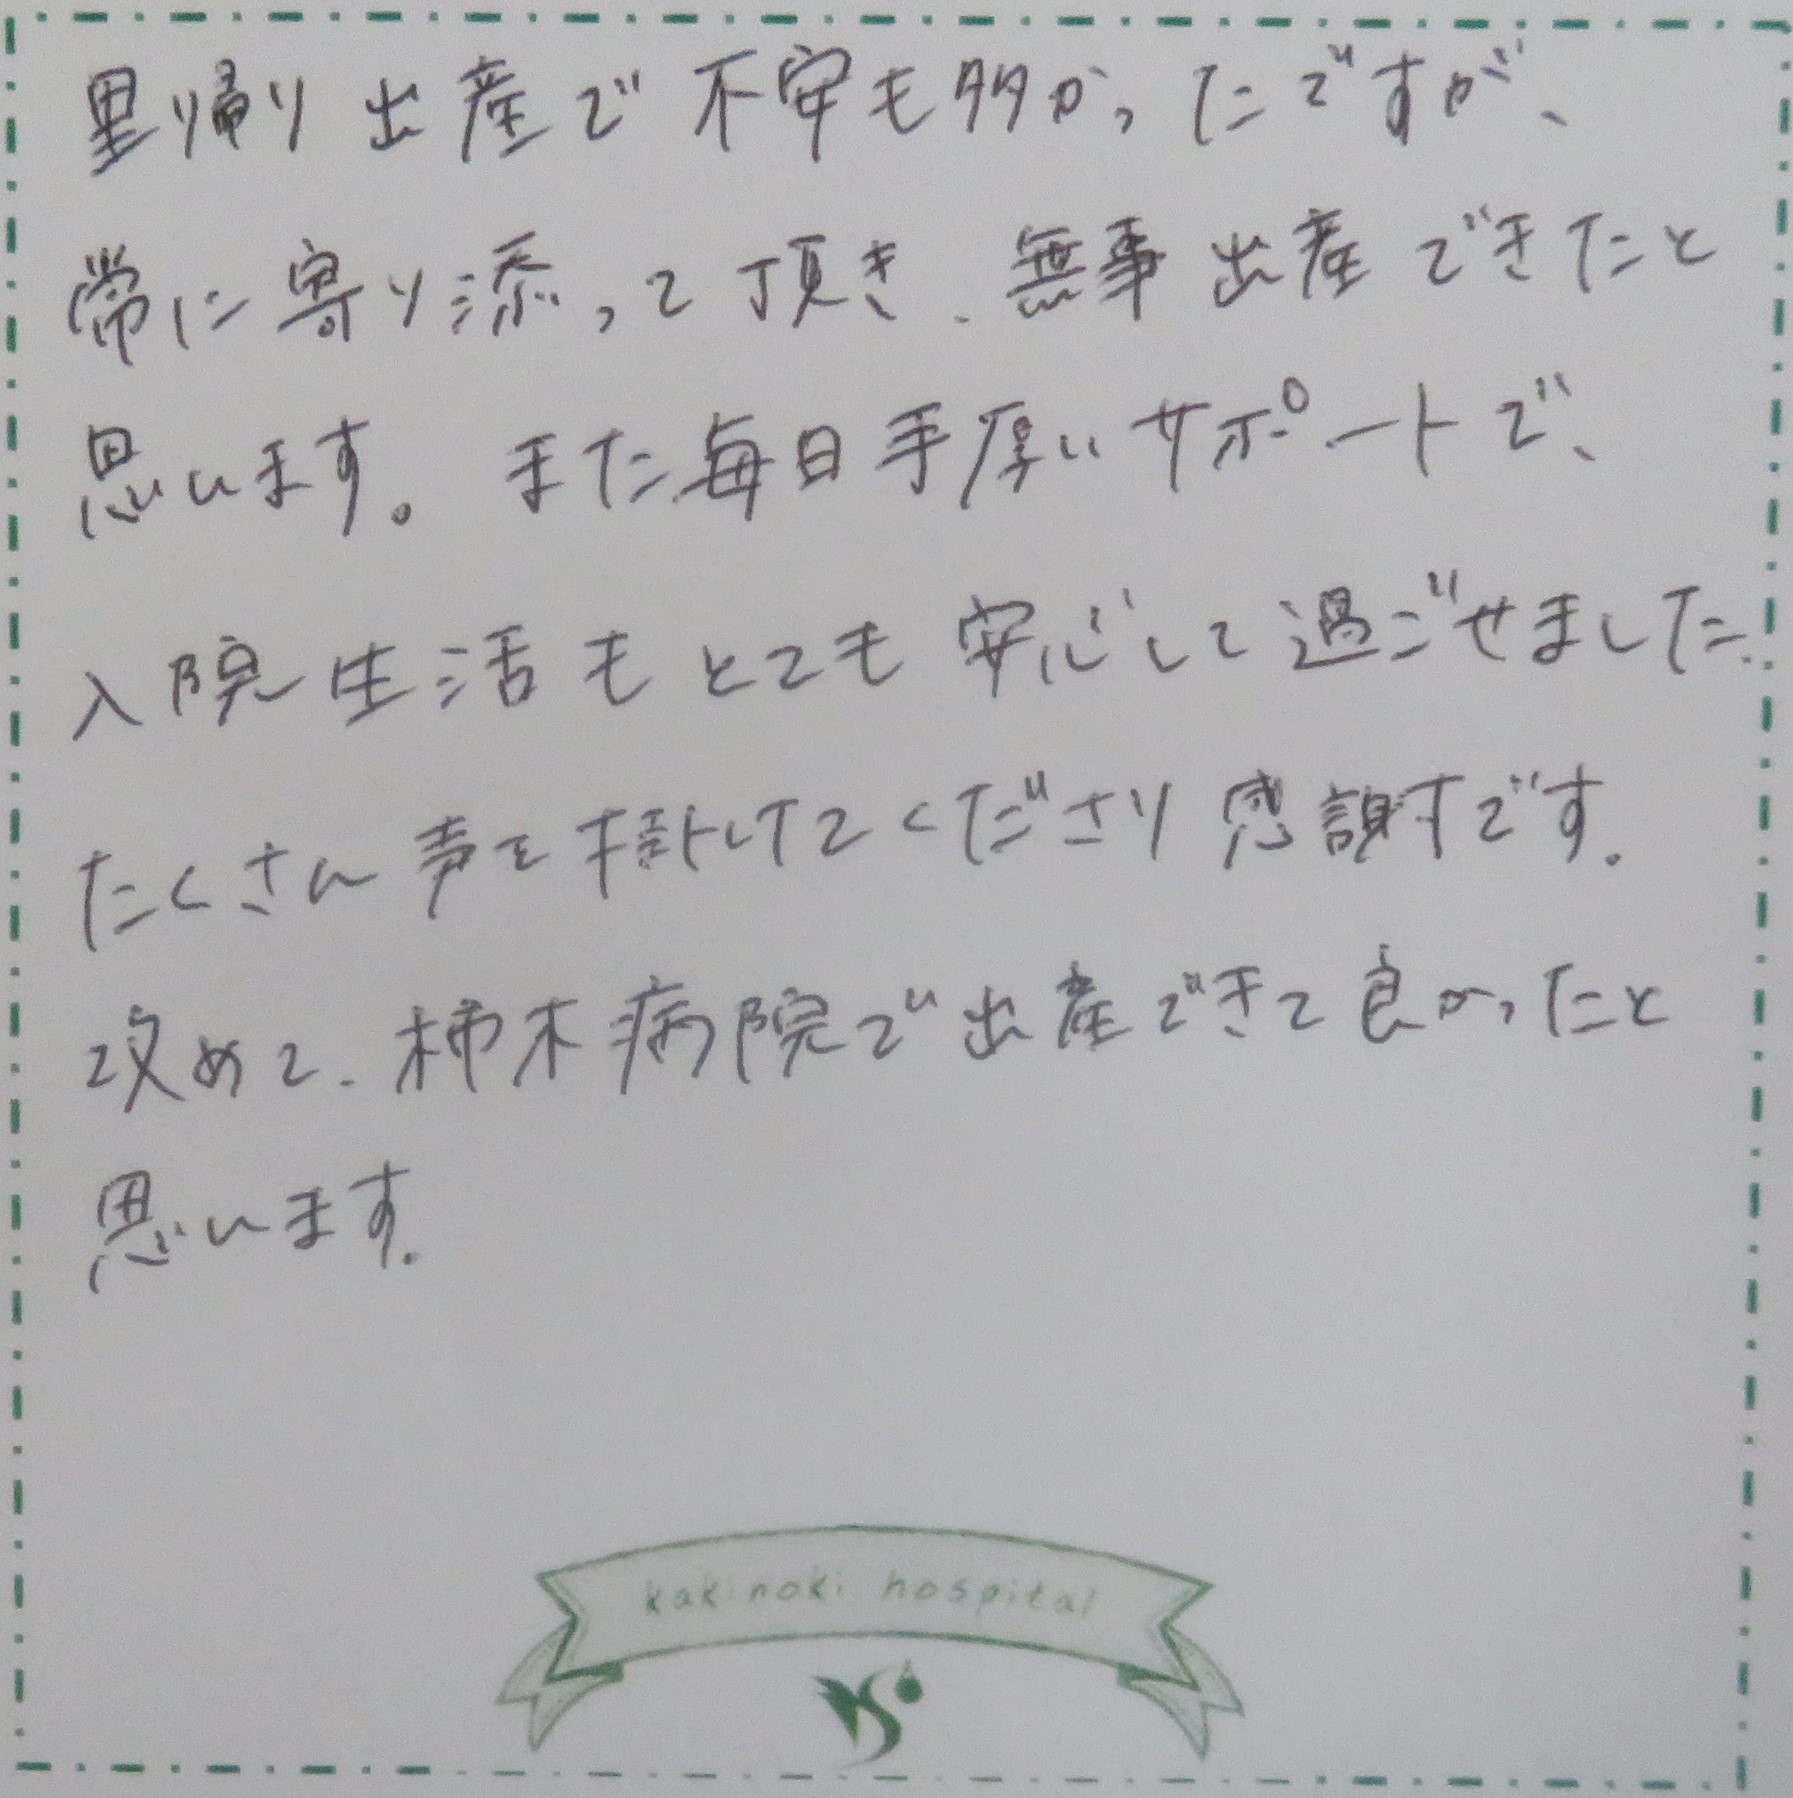 里帰り出産で不安も多かったですが、
常に寄り添って頂き、無事出産できたと
思います。また毎日手厚いサポートで、
入院生活もとても安心して過ごせました。
たくさん声を掛けてくださり感謝です。
改めて、柿木病院で出産できて良かったと
思います。
kakinoki hospital